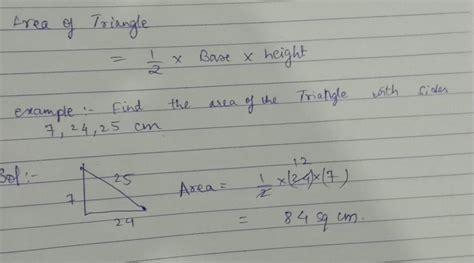 Area of Triangle
= 1/2 × Base × height
example :- Find the area of the Triangle with sides
7, 24, 25 cm
Sol :-
25
7
24
Area = 1/2 × (24) × (7)
12
= 84 sq cm.